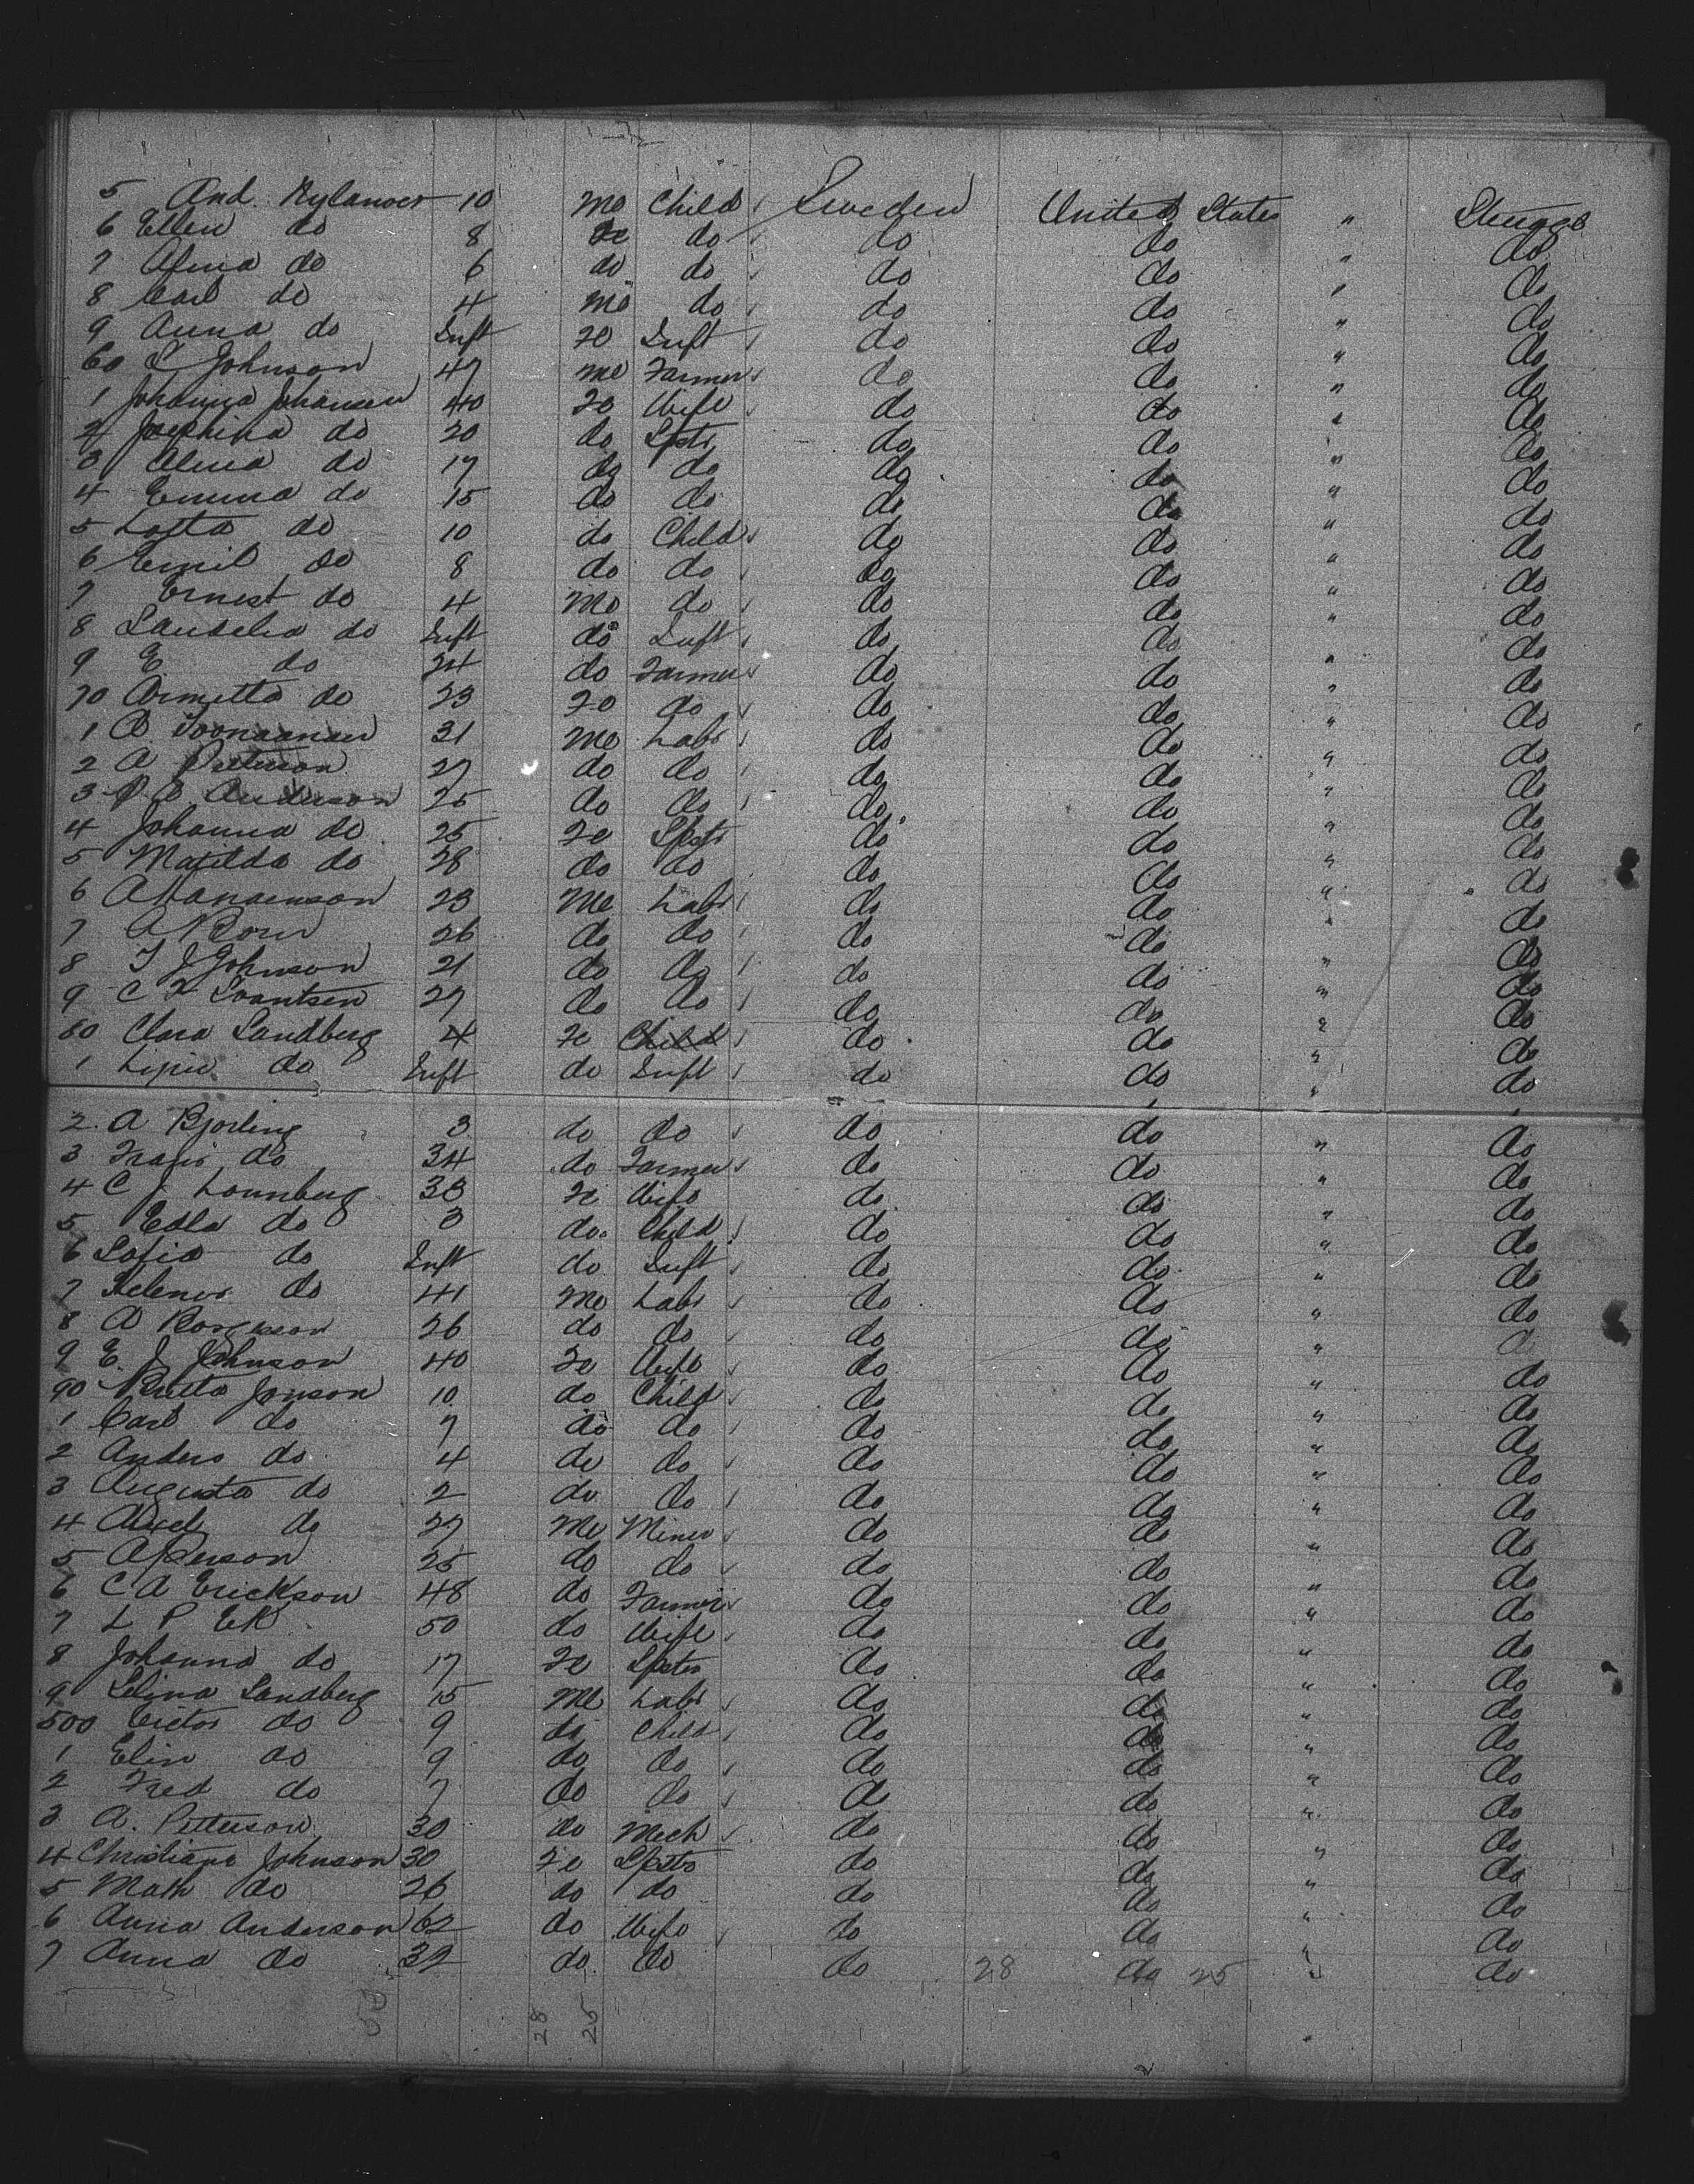 5 And. Nylander 10 Me Child Sweden United States " Steerage
6 Ellen do 8 Fe do do do " do
7 Alma do 6 do do do do " do
8 Carl do 4 Me do do do " do
9 Anna do Inft Fe Inft do do " do
60 S Johnson 47 Me Farmer do do " do
1 Johanna Johansen 40 Fe Wife do do " do
2 Josephina do 20 do Spstr do do " do
3 Alma do 17 do do do do " do
4 Emma do 15 do do do do " do
5 Lotta do 10 do Child do do " do
6 Emil do 8 do do do do " do
7 Ernest do 4 Me do do do " do
8 do Inft do Inft do do " do
9 E do 24 do Farmer do do " do
70 do 23 Fe do do do " do
1 31 Me Labr do do " do
2 A Petterson 27 do do do do " do
3 Anderson 25 do do do do " do
4 Johanna do 25 Fe Spstr do do " do
5 Matilda do 28 do do do do " do
6 23 Me Labr do do " do
7 26 do do do do " do
8 T J Johnson 21 do do do do " do
9 C F 27 do do do do " do
80 Clara Sandberg 4 Fe Child do do " do
1 do Inft do Inft do do " do
2 A Bjorling 3 do do do do " do
3 Frans do 34 do Farmer do do " do
4 C J 33 Fe Wife do do " do
5 Edla do 3 do Child do do " do
6 Sofia do Inft do Inft do do " do
7 Helena do 41 Me Labr do do " do
8 A 26 do do do do " do
9 E. J Johnson 40 Fe Wife do do " do
90 Britta Jonson 10 do Child do do " do
1 Carl do 7 do do do do " do
2 Anders do 4 do do do do " do
3 Augusta do 2 do do do do " do
4 Axel do 27 Me Miner do do " do
5 A Person 25 do do do do " do
6 C A Erickson 48 do Farmer do do " do
7 L P Ek 50 do Wife do do " do
8 Johanna do 17 Fe Spstr do do " do
9 Selina Sandberg 15 Me Labr do do " do
500 Victor do 9 do Child do do " do
1 Elin do 9 do do do do " do
2 Fred do 7 do do do do " do
3 A. Petterson 30 do Mech do do " do
4 Christiana Johnson 30 Fe Spstr do do " do
5 Math do 26 do do do do " do
6 Anna Anderson 62 do Wife do do " do
7 Anna do 32 do do do 28 do 25 " do
28 25